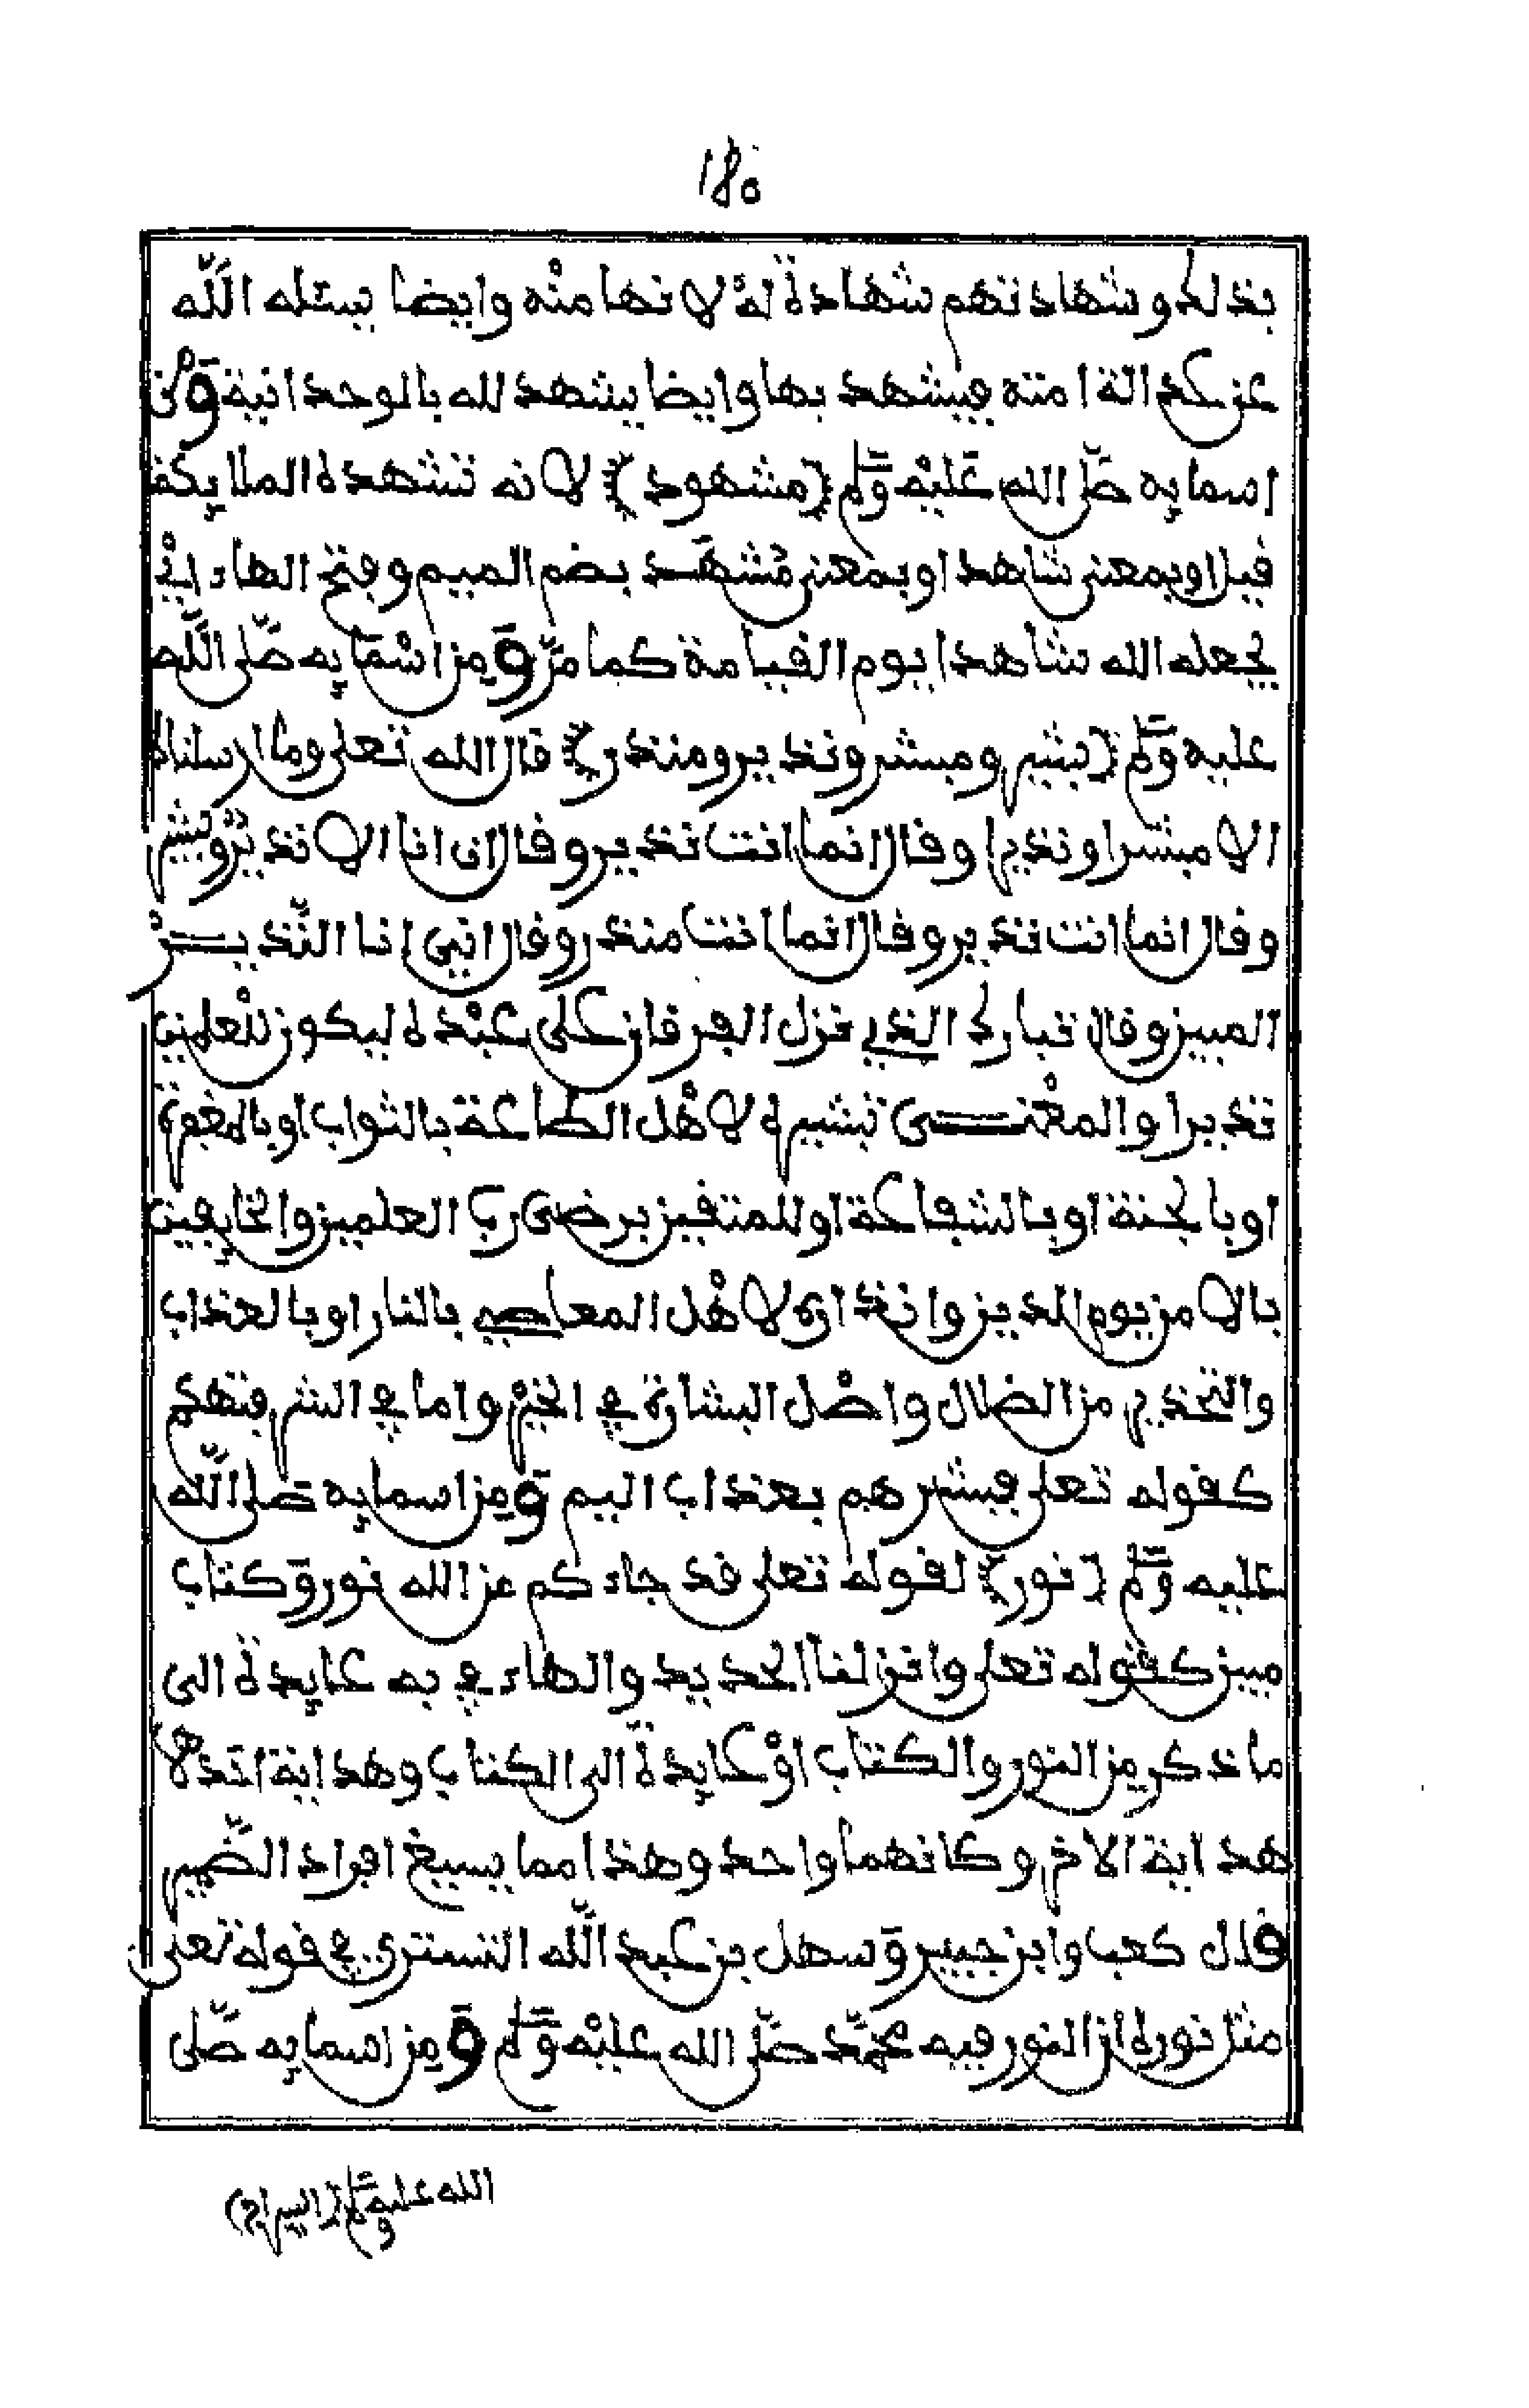 180
بذلك وشهادتهم شهادة له لانها منه وايضا يسئله الله
عن عدالة امته فيشهد بها وايضا يشهد لله بالوحدانية ومن
اسمايه صلى الله عليه وسلم (مشهود) لانه تشهده الملايكة
قيل او بمعنى شاهد او بمعنى مُشهَد بضم الميم وفتح الهاء اي
يجعله الله شاهدا يوم القيامة كما مر ومن اسمايه صلى الله
عليه وسلم (بشير ومبشر ونذير ومنذر) قال الله تعلى وما ارسلناك
الا مبشرا ونذيرا وقال انما انت نذير وقال ان انا الا نذير وبشير
وقال انما انت نذير وقال انما انت منذر وقال اني انا النذير
المبين وقال تبارك الذي نزل الفرقان على عبده ليكون للعلمين
نذيرا والمعنى تبشيره لاهل الطاعة بالثواب او بالمغفرة
او بالجنة او بالشفاعة او للمتقين برضى رب العلمين والخايفين
بالامن يوم الدين وانذاره لاهل المعاصي بالنار او بالعذاب
والتحذير من الضلال واصل البشارة في الخير واما في الشر فتهكم
كقوله تعلى فبشرهم بعذاب اليم ومن اسمايه صلى الله
عليه وسلم (نور) لقوله تعلى قد جاءكم من الله نور وكتاب
مبين كقوله تعلى وانزلنا الحديد والهاء في به عايدة الى
ما ذكر من النور والكتاب او عايدة الى الكتاب وهداية احدهما
هداية الاخر وكانهما واحد وهذا مما يسيغ افراد الضمير
قال كعب وابن جبير وسهل بن عبد الله التستري في قوله تعلى
مثل نوره ان النور فيه محمد صلى الله عليه وسلم ومن اسمايه صلى
الله عليه وسلم (السراج)